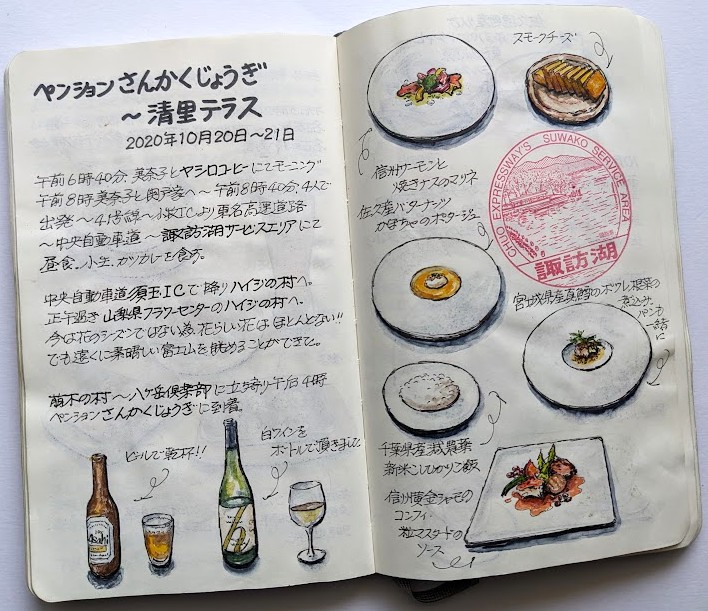 ペンションさんかくじょうぎ
～清里テラス
2020年10月20日～21日
午前6時40分 美奈子とヤシロコーヒーにてモーニング
午前8時美奈子と関戸家へ～午前8時40分4人で
出発～41号線～小牧ICより東名高速道路
～中央自動車道～諏訪湖サービスエリアにて
昼食。小生、カツカレーを食す。
中央自動車道須玉ICで降りハイジの村へ。
正午過ぎ山梨県フラワーセンターのハイジの村へ。
今は花のシーズンではない為花らしい花はほとんどない!!
でも遠くに素晴しい富士山を眺めることができて。
萌木の村～八ヶ岳倶楽部に立ち寄り午后4時
ペンションさんかくじょうぎに到着。
ビールで乾杯!!
白ワインを
ボトルで頂きました
Asahi
スモークチーズ
信州サーモンと
焼きナスのマリネ
佐久産バターナッツ
かぼちゃのポタージュ
CHUO EXPRESSWAY'S SUWAKO SERVICE AREA
諏訪湖
宮城県産真鱈のポワレ 根菜の
煮込み。
パンも
一緒に
千葉県産減農薬
新米こしひかりご飯
信州黄金シャモの
コンフィ
粒マスタードの
ソース